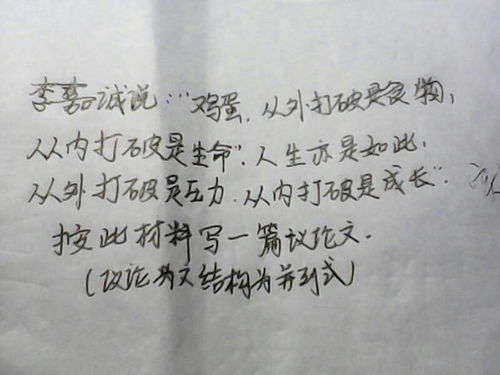 李嘉诚说:“鸡蛋,从外打破是食物,
从内打破是生命”.人生亦是如此,
从外打破是压力.从内打破是成长”.
按此材料写一篇议论文.
(议论为文结构为并列式)